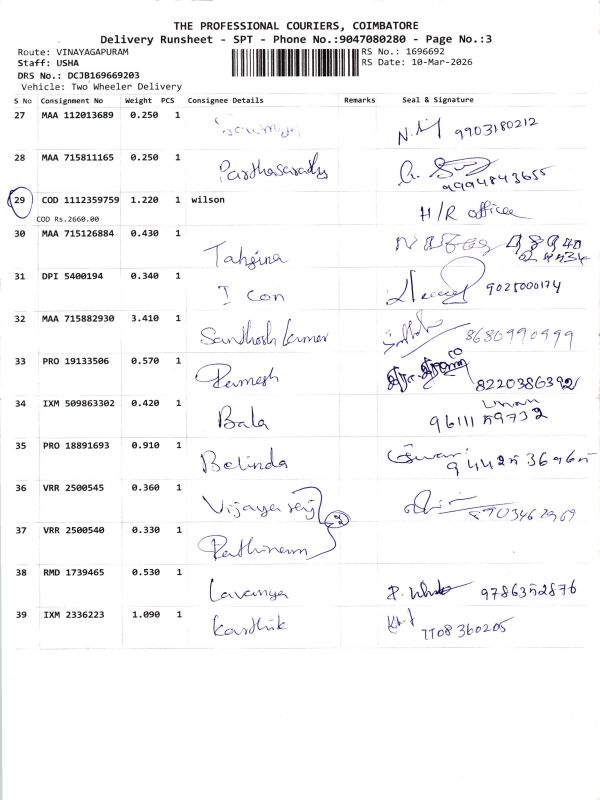 THE PROFESSIONAL COURIERS, COIMBATORE
Delivery Runsheet - SPT - Phone No.:9047080280 - Page No.:3
Route: VINAYAGAPURAM RS No.: 1696692
Staff: USHA RS Date: 10-Mar-2026
DRS No.: DCJB169669203
Vehicle: Two Wheeler Delivery
S No Consignment No Weight PCS Consignee Details Remarks Seal & Signature
27 MAA 112013689 0.250 1 Sowmya 9903180212
28 MAA 715811165 0.250 1 Parthasarathy 9994843655
29 COD 1112359759 1.220 1 wilson H/R office
COD Rs.2660.00
30 MAA 715126884 0.430 1 Tahsina
31 DPI 5400194 0.340 1 I con 9025000174
32 MAA 715882930 3.410 1 Santhosh kumar 8680990999
33 PRO 19133506 0.570 1 Ramesh 8220386392
34 IXM 509863302 0.420 1 Bala 9611159732
35 PRO 18891693 0.910 1 Belinda 9442536965
36 VRR 2500545 0.360 1 8903462969
37 VRR 2500540 0.330 1 2
38 RMD 1739465 0.530 1 Lavanya 9786352876
39 IXM 2336223 1.090 1 Karthik 7708360205